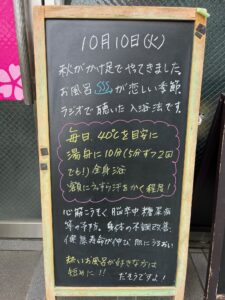 10月10日(火)
秋がかけ足でやってきました。
お風呂♨が恋しい季節
ラジオで聴いた入浴法です。
毎日 40℃を目安に
湯舟に10分(5分ずつ2回
でも!)全身浴
額にうっすら汗をかく程度!
心筋こうそく 脳卒中 糖尿病
等の予防。身体の不調改善、
健康寿命が伸び 肌にうるおい
熱いお風呂が好きな方は
短めに!! だそうですよ!